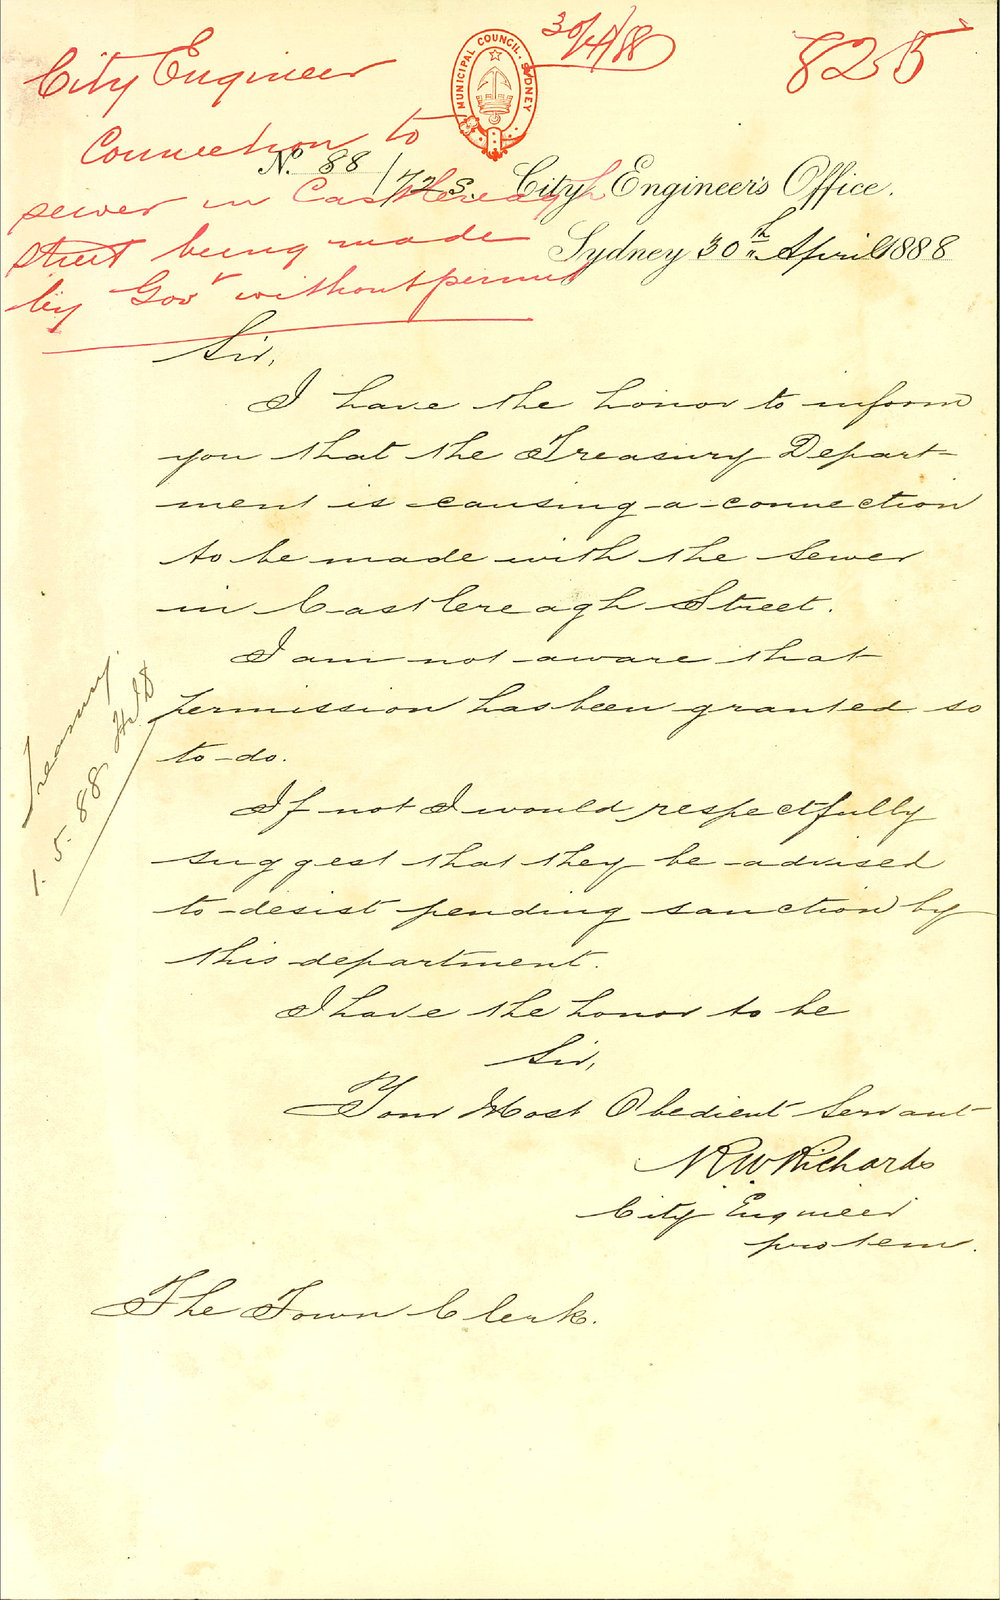 City Engineer
30/4/88
825
MUNICIPAL COUNCIL. SYDNEY
Connection to
sewer in Castlereagh
Street being made
by Govt without permit
No. 88/723. City Engineer's Office.
Sydney 30th April 1888
Sir,
I have the honor to inform
you that the Treasury Depart-
ment is causing a connection
to be made with the sewer
in Castlereagh Street.
I am not aware that
permission has been granted so
to do.
If not I would respectfully
suggest that they be advised
to desist pending sanction by
this department.
I have the honor to be
Sir,
Your Most Obedient Servant
R W Richards
City Engineer
pro tem.
The Town Clerk.
Treasury.
1.5.88